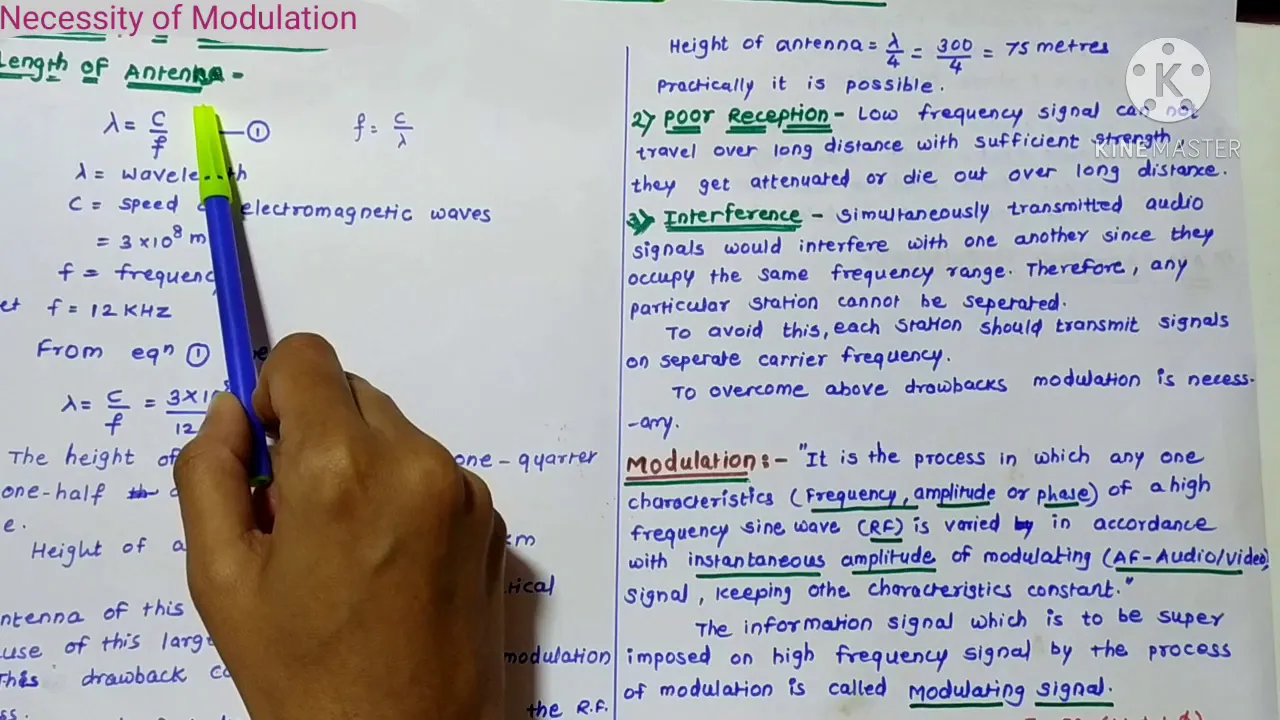 Necessity of Modulation
Length of Antenna -
λ = C/f — ① f = C/λ
λ = wavelength
C = speed electromagnetic waves
= 3 × 10⁸ m
f = frequency
f = 12 KHz
From eqⁿ ①
λ = C/f = 3×10 / 12
The height of one-quarter
one-half
e.
Height of a m
antenna of this
use of this large
modulation
This drawback
the R.F.
Height of antenna = λ/4 = 300/4 = 75 metres
Practically it is possible.
2) Poor Reception - Low frequency signal can not
travel over long distance with sufficient strength,
they get attenuated or die out over long distance.
3) Interference - simultaneously transmitted audio
signals would interfere with one another since they
occupy the same frequency range. Therefore, any
particular station cannot be seperated.
To avoid this, each station should transmit signals
on seperate carrier frequency.
To overcome above drawbacks modulation is necess-
-ary.
Modulation :- "It is the process in which any one
characteristics (frequency, amplitude or phase) of a high
frequency sine wave (RF) is varied in accordance
with instantaneous amplitude of modulating (AF-Audio/video)
signal, keeping othe characteristics constant."
The information signal which is to be super
imposed on high frequency signal by the process
of modulation is called Modulating signal.
K
KINEMASTER